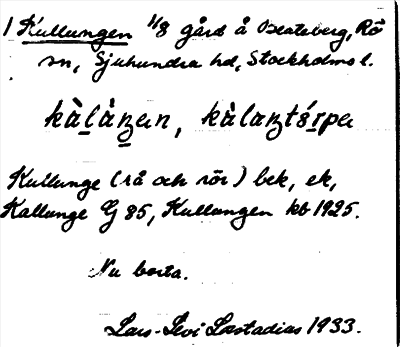 1 Kullungen 1/8 gård å Oxateberg, Rö
sn, Sjuhundra hd, Stockholms l.
kàlåŋen, kàlaŋtɷ́rpa
Kullunge (rå och rör) bek, ek,
Kallunge G 85, Kullungen kb 1925.
Nu borta.
Lars-Levi Læstadius 1933.